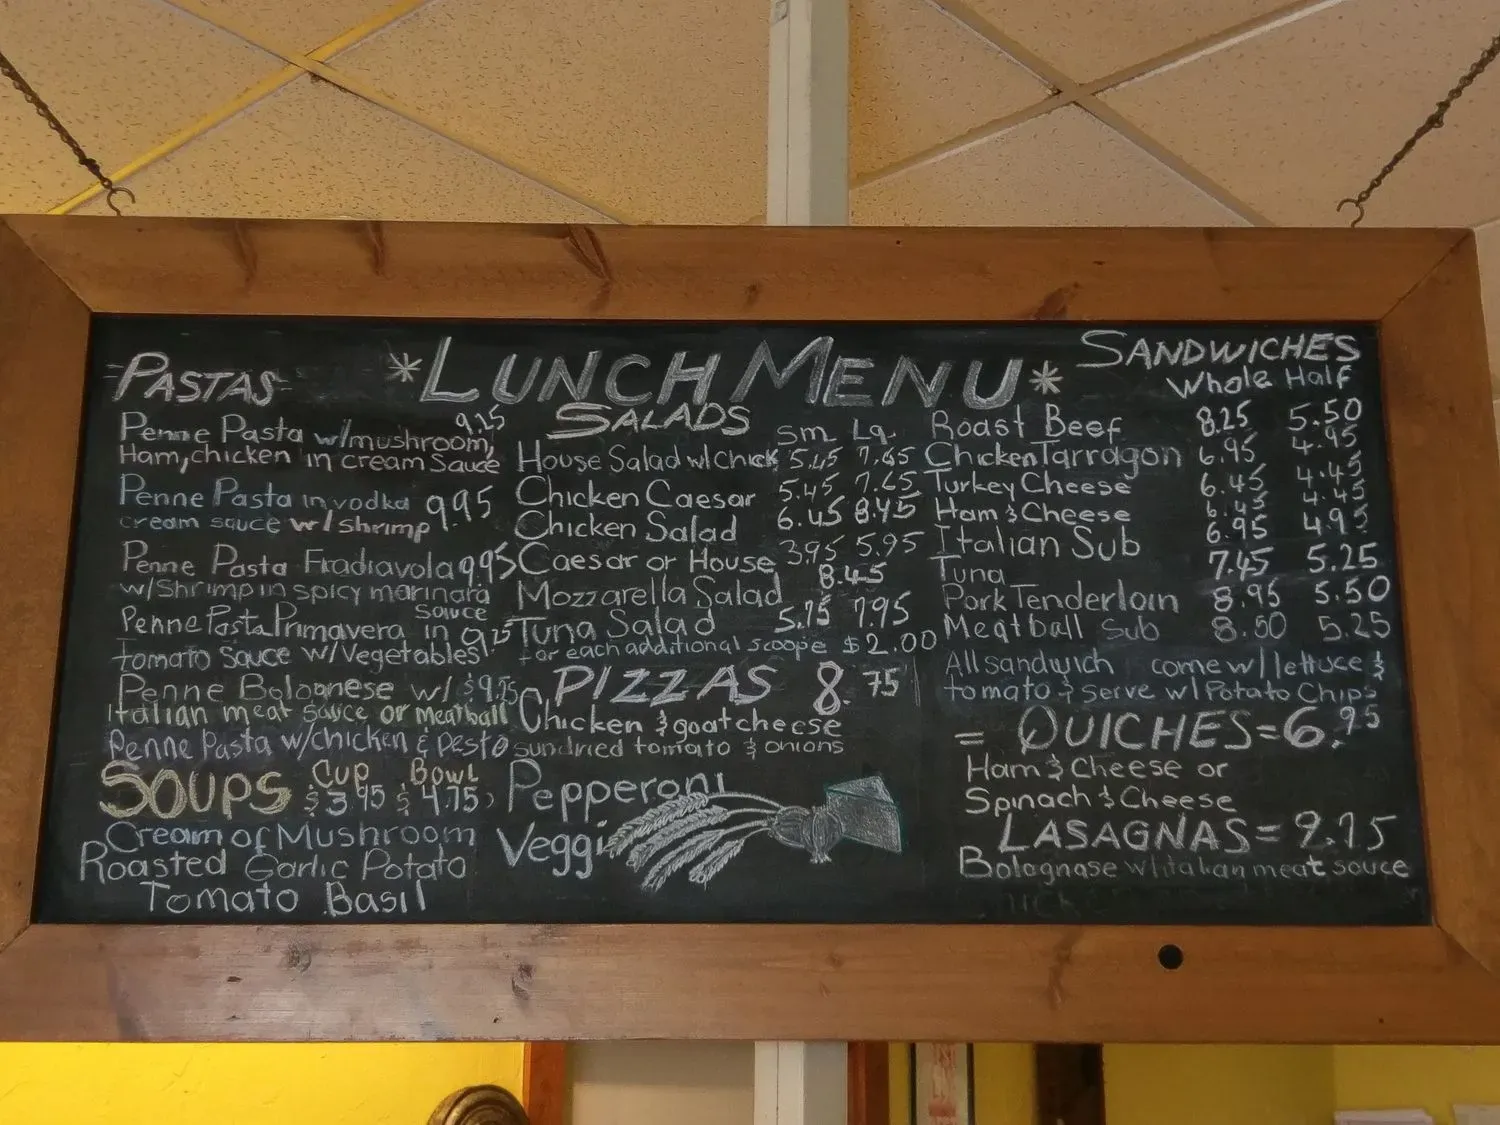 PASTAS
Penne Pasta w/mushroom, 9.25
Ham, chicken in cream Sauce
Penne Pasta in vodka 9.95
cream sauce w/shrimp
Penne Pasta Fradiavola 9.95
w/Shrimp in spicy marinara
Sauce
Penne Pasta Primavera in 9.25
tomato Sauce w/Vegetables
Penne Bolognese w/ $9.75
Italian meat sauce or meatball
Penne Pasta w/chicken & pesto
SOUPS Cup Bowl
$3.95 $4.75
Cream of Mushroom
Roasted Garlic Potato
Tomato Basil
*LUNCH MENU*
SALADS
Sm Lg
House Salad w/Chick 5.45 7.65
Chicken Caesar 5.45 7.65
Chicken Salad 6.45 8.45
Caesar or House 3.95 5.95
Mozzarella Salad 8.45
Tuna Salad 5.75 7.95
for each additional scoope $2.00
PIZZAS 8.75
Chicken & goat cheese
sundried tomato & onions
Pepperoni
Veggi
SANDWICHES
Whole Half
Roast Beef 8.25 5.50
Chicken Tarragon 6.95 4.95
Turkey Cheese 6.45 4.45
Ham & Cheese 6.45 4.45
Italian Sub 6.95 4.95
Tuna 7.45 5.25
Pork Tenderloin 8.95 5.50
Meatball Sub 8.50 5.25
All sandwich come w/lettuce &
tomato & serve w/Potato Chips
= QUICHES = 6.95
Ham & Cheese or
Spinach & Cheese
LASAGNAS = 9.75
Bolognase w/italian meat souce